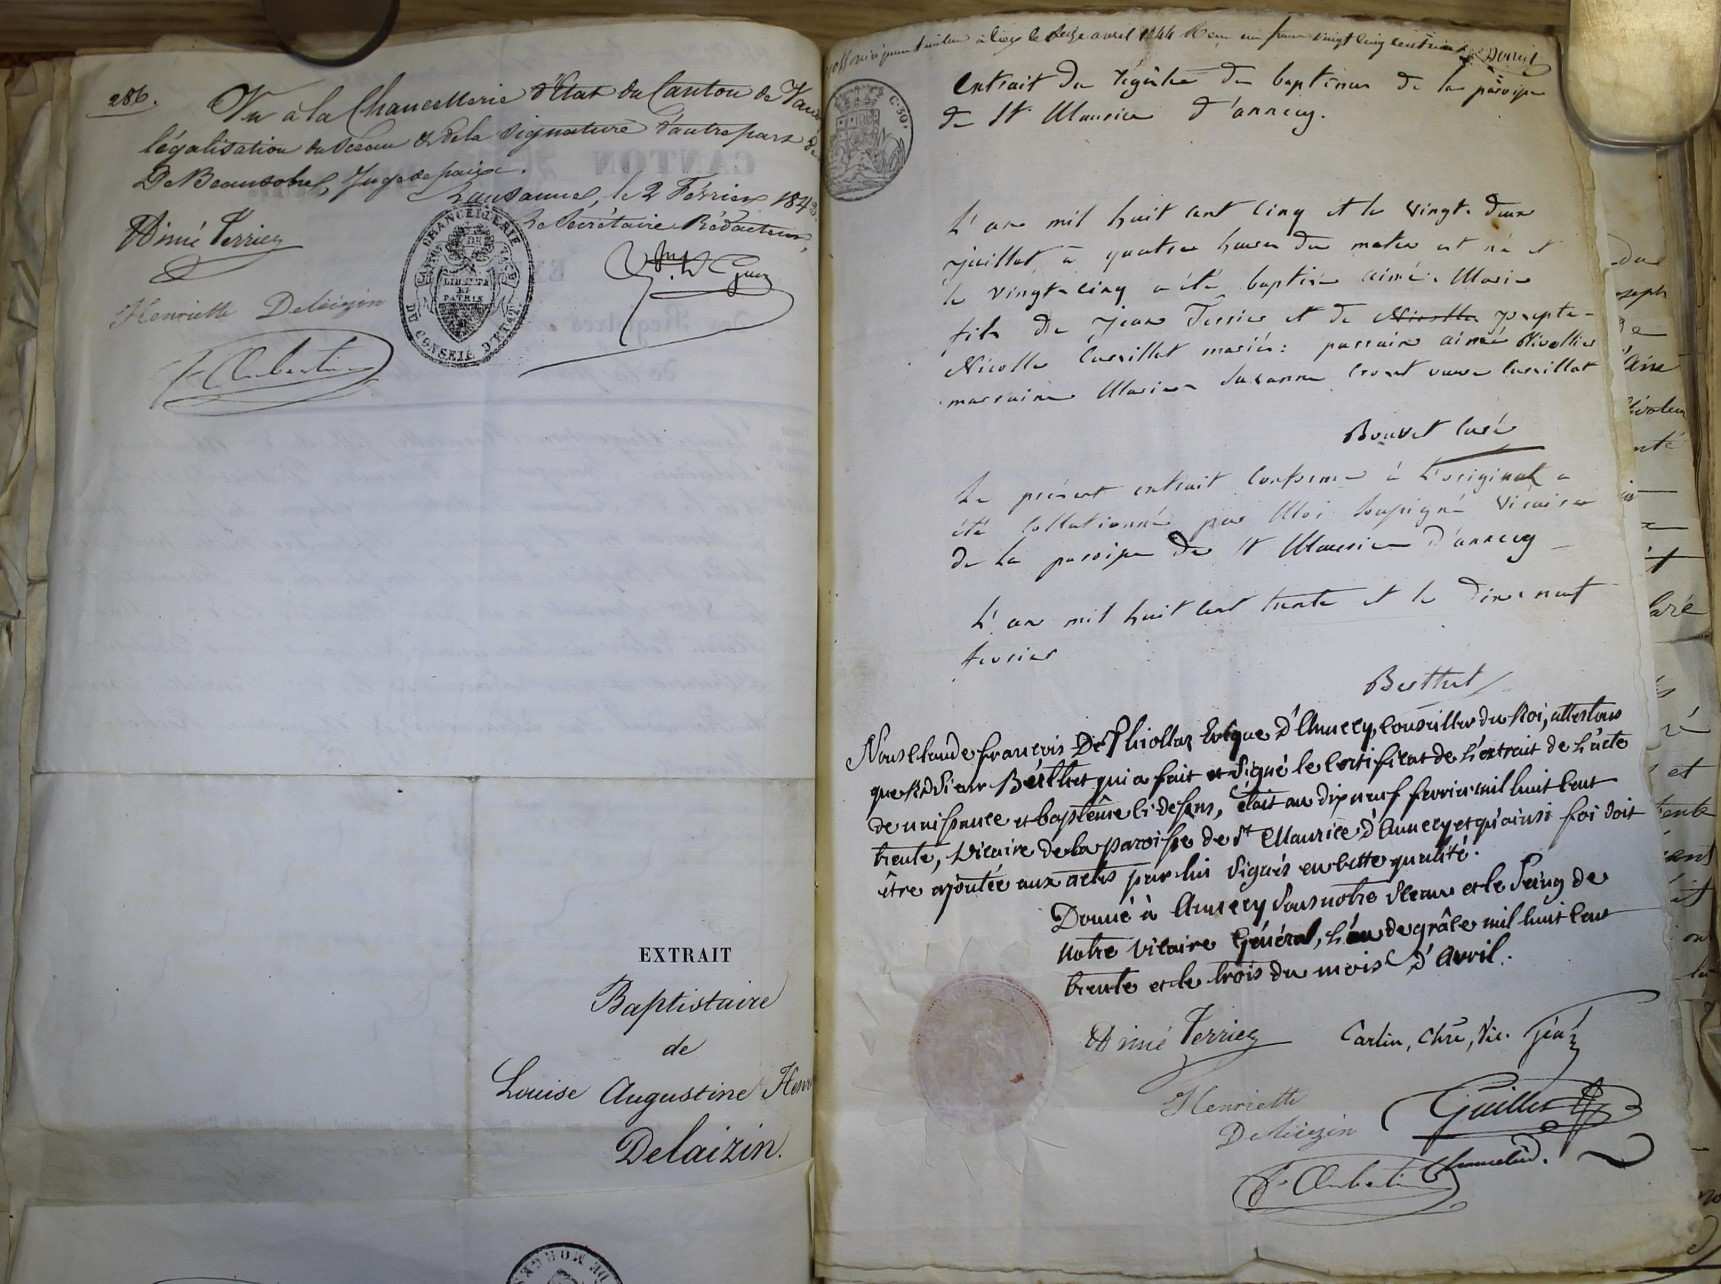 286. Vu à la Chancellerie d'État du Canton de Vaud
légalisation du Sceau & de la signature d'autre part de
De Beausobre, Juge de paix.
Lausanne, le 2 Février 1843.
Le Secrétaire Rédacteur,
Aimé Terrier
CHANCELLERIE
CANTON DE VAUD
LIBERTÉ
ET
PATRIE
DU CONSEIL D'ÉTAT
Henriette Delaizin
F. Aubertin
EXTRAIT
Baptistaire
de
Louise Augustine Henr
Delaizin.
à Liège le seize avril 1844 Reçu un franc vingt cinq centimes
C. 30.
extrait du régistre de baptêmes de la paroisse
de St Maurice d'annecy.
L'an mil huit cent cinq et le vingt deux
juillet à quatre heures du matin est né et
le vingt cinq a été baptisé aimé Marie
fils de jean Terrier et de Nicolle josepte
Nicolle Cuvillat mariés: parrain aimé Nivollier
marraine Marie Suzanne Crovet veuve Cuvillat
Bouvet Curé
Le présent extrait conforme à L'original a
été collationné par Moi soussigné Vicaire
de la paroisse de St Maurice d'annecy
L'an mil huit cent trente et le dix neuf
fevrier
Berthet
Nous Claude françois De Thiollaz Evêque D'Annecy, Conseiller du Roi, attestons
que Rd Sieur Berthet qui a fait et signé le Certificat de L'extrait de L'acte
de naissance et baptême ci dessus, était au dix neuf fevrier mil huit cent
trente, Vicaire de la paroisse de St Maurice d'Annecy et qu'ainsi foi doit
être ajoutée aux actes par lui signés en cette qualité.
Donné à Annecy sous notre sceau et le seing de
notre vicaire Général, L'an de grâce mil huit cent
trente et le trois du mois d'Avril.
Aimé Terrier Carlin, Chne, Vic. Géál
Henriette
Delaizin
Guillet
F. Aubertin
Chancelier.